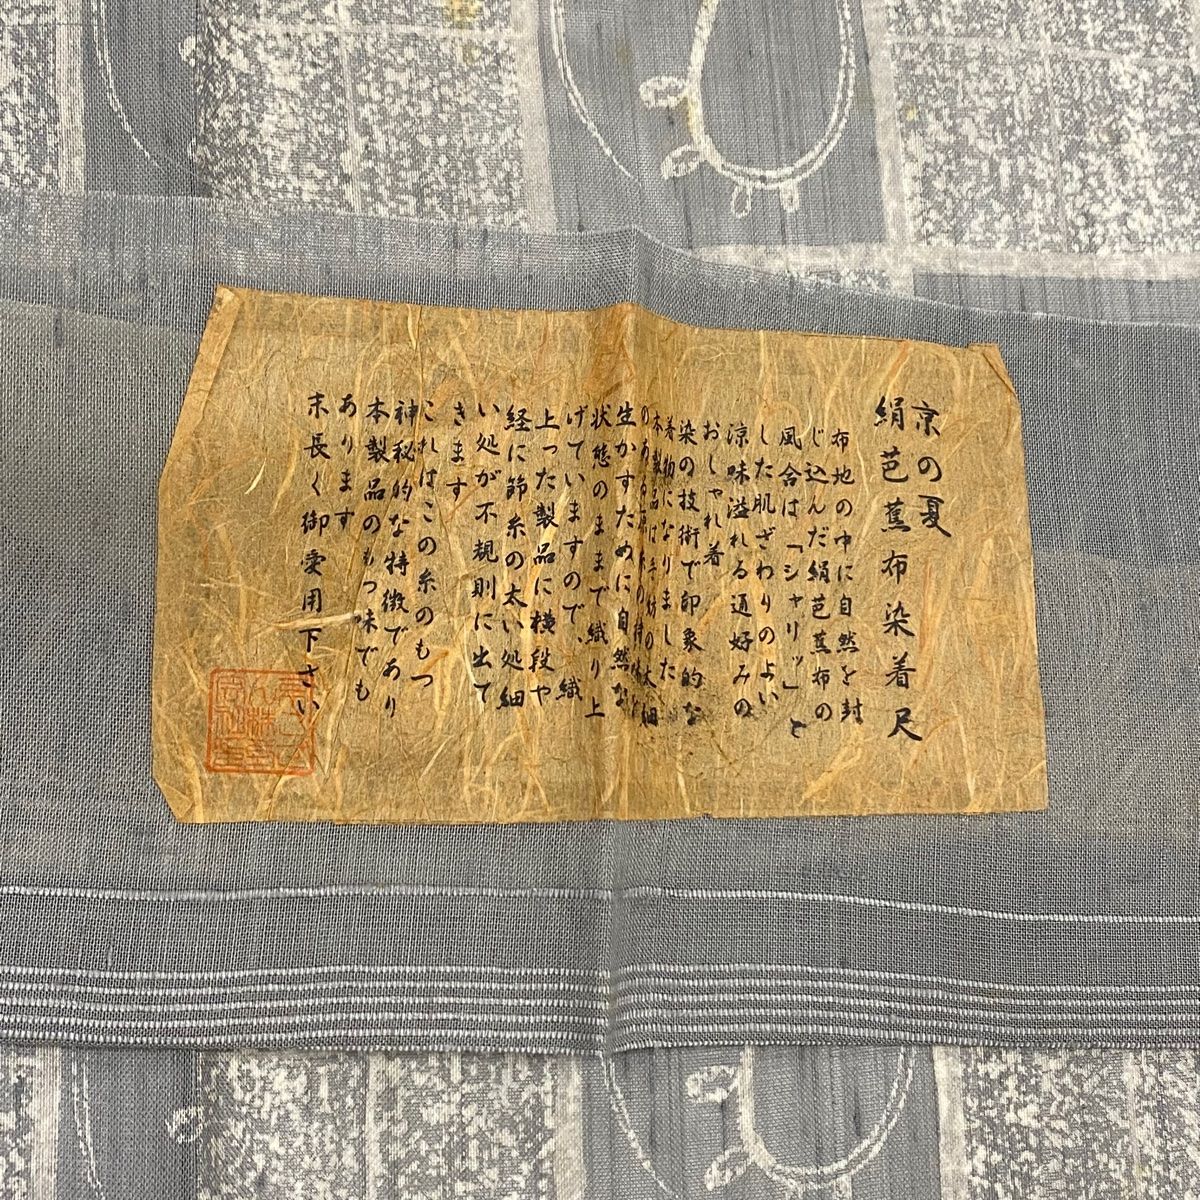 京の夏
絹芭蕉布染着尺
布地の中に自然を封
じ込んだ絹芭蕉布の
風合は「シャリッ」と
した肌ざわりのよい
涼味溢れる通好みの
おしゃれ着
染の技術で印象的な
着物になりました
本製品は手紡の太細
のある原糸の持味を
生かすために自然な
状態のままで織り上
げていますので、織
上った製品に横段や
経に節糸の太い処細
い処が不規則に出て
きます
これはこの糸のもつ
神秘的な特徴であり
本製品のもつ味でも
あります
末長く御愛用下さい